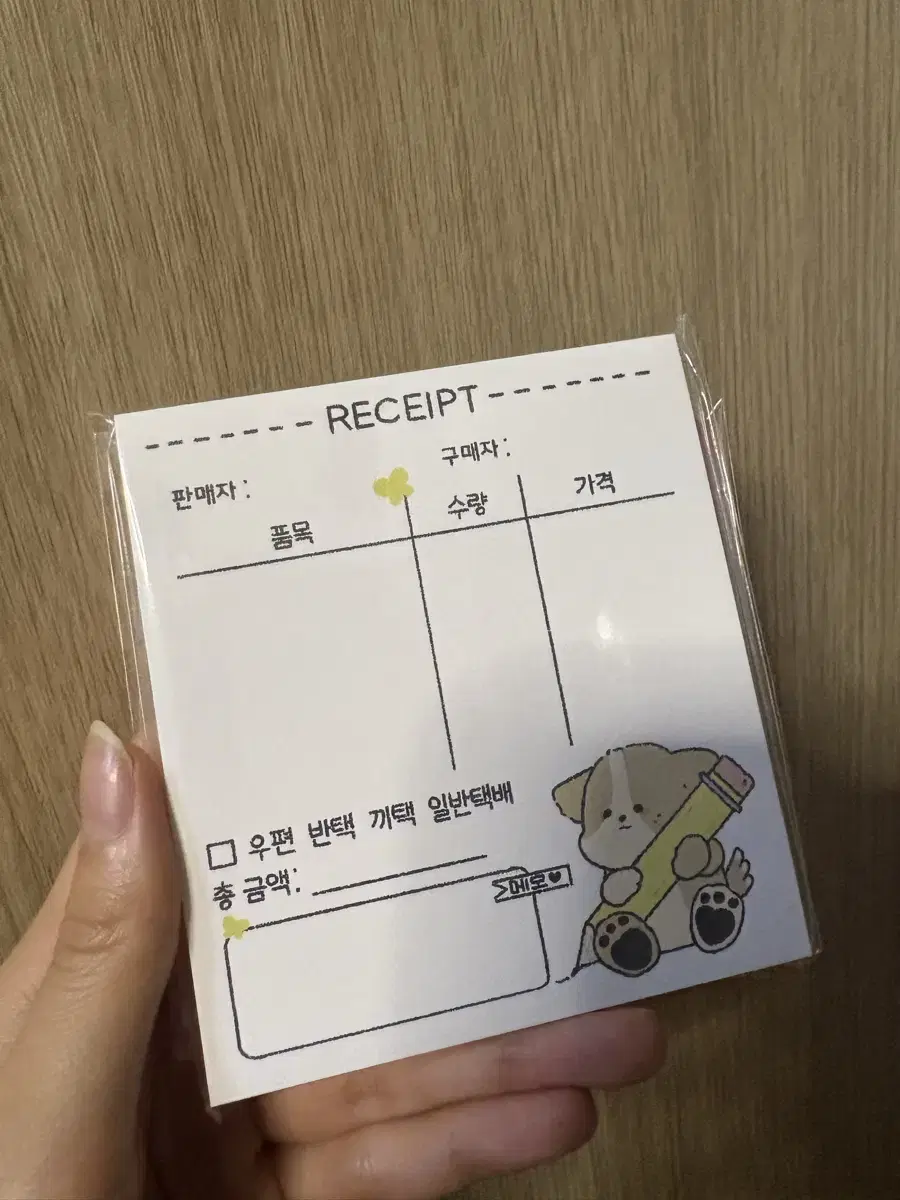 RECEIPT
판매자: 구매자:
품목 수량 가격
우편 반택 끼택 일반택배
총 금액:
메모♥